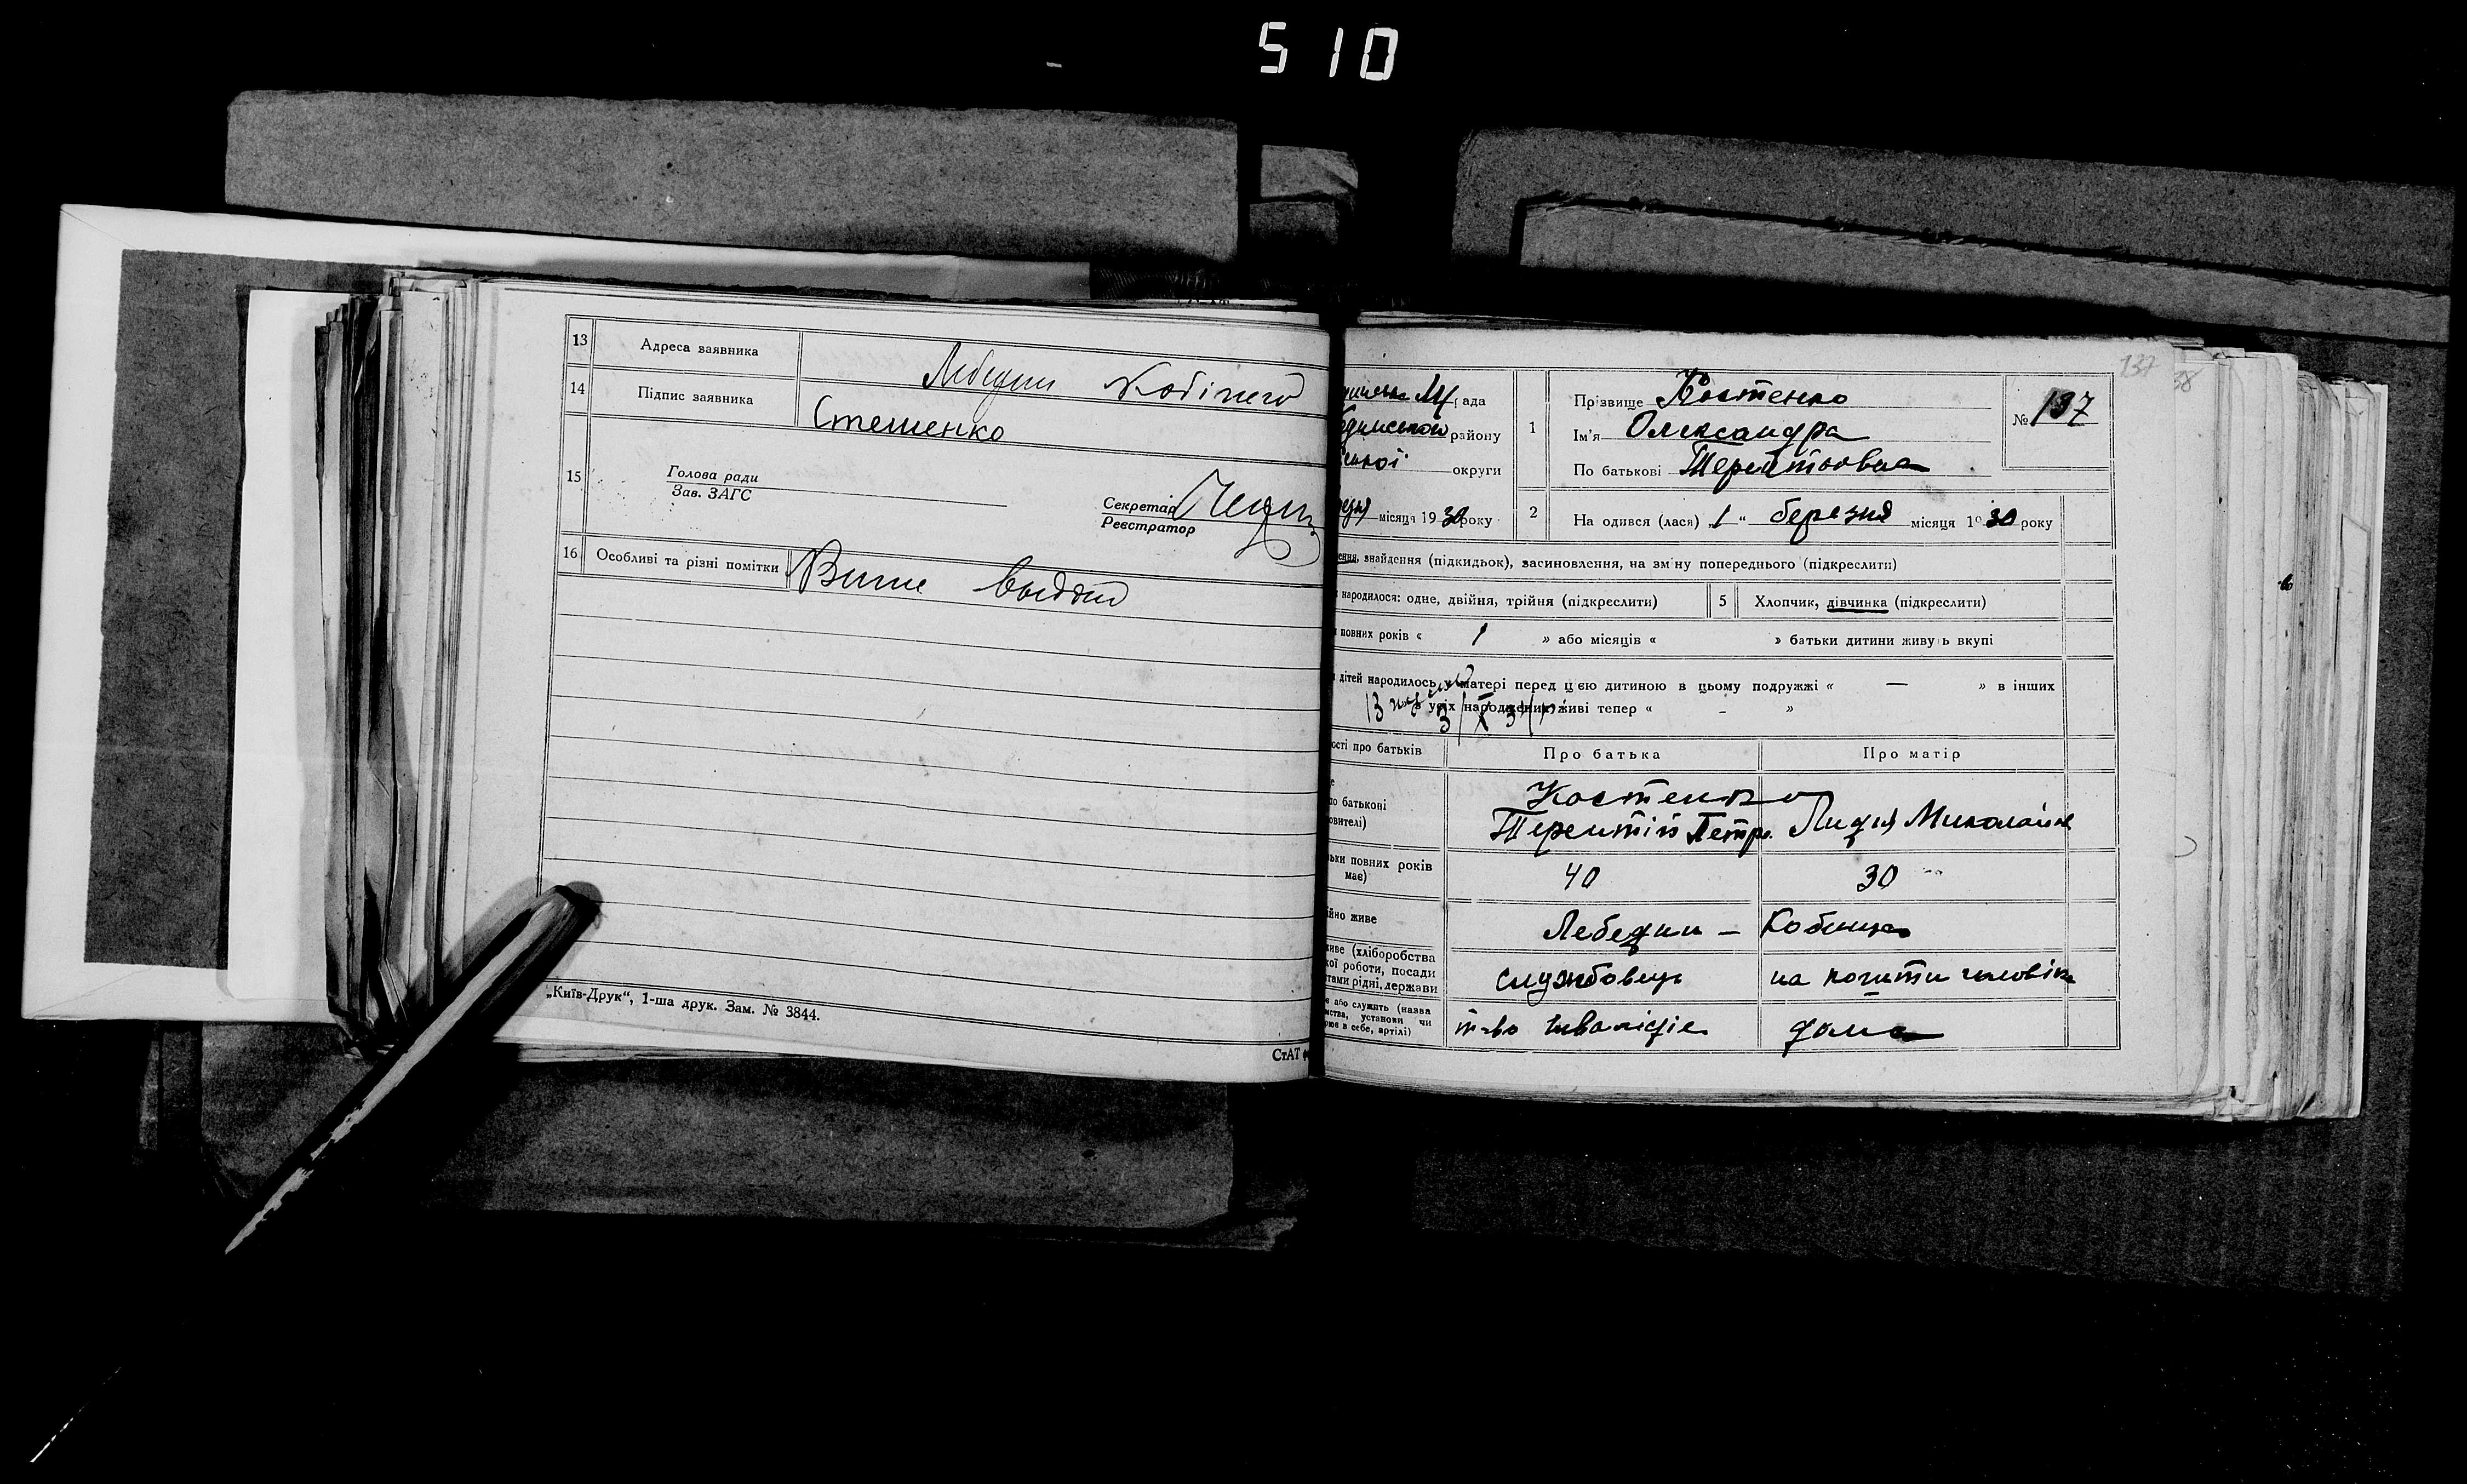 510
13 Адреса заявника Лебедин Кобіжча
14 Підпис заявника Стешенко
15 Голова ради
Зав. ЗАГС
Секретар
Реєстратор
16 Особливі та різні помітки
„Київ-Друк“, 1-ша друк. Зам. № 3844.
СтАТ
137
рада
району
округи
місяця 1930 року
1 Прізвище Костенко
Ім'я Олександра
По батькові Терентьовна
№ 137
2 На одився (лася) „1“ березня місяця 1930 року
знайдення (підкидьок), засиновлення, на зміну попереднього (підкреслити)
народилося: одне, двійня, трійня (підкреслити) 5 Хлопчик, дівчинка (підкреслити)
повних років « 1 » або місяців « » батьки дитини живуть вкупі
дітей народилось у матері перед цією дитиною в цьому подружжі « — » в інших
з усіх народжених живі тепер « - »
ості про батьків Про батька Про матір
по батькові
овителі)
Костенко
Терентій Петр. Лидія Миколаївн
ьки повних років
має) 40 30
ійно живе Лебедин – Кобижча
живе (хліборобства
кої роботи, посади
тами рідні, держави
службовець на кошти чоловіка
або служить (назва
мства, установи чи
рює в себе, артілі)
т-во інвалідів дома